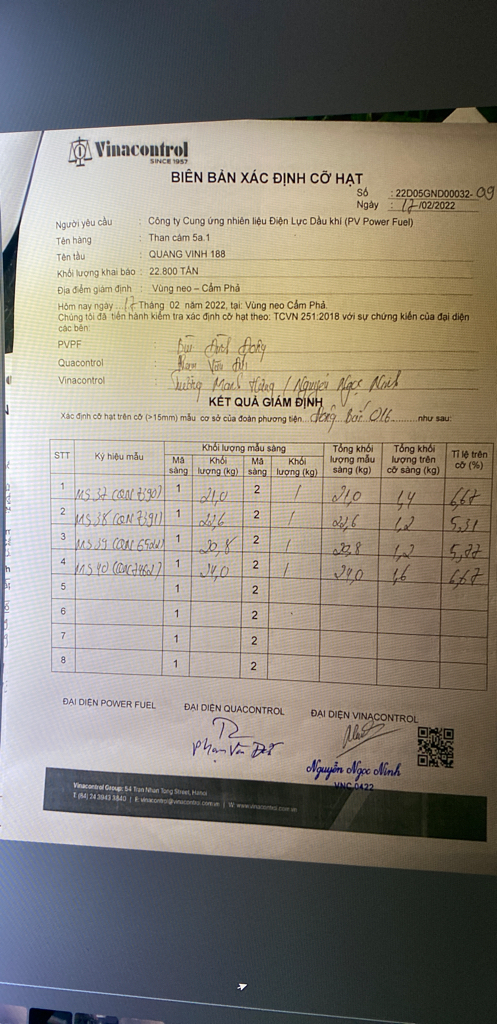 Vinacontrol
SINCE 1957
BIÊN BẢN XÁC ĐỊNH CỠ HẠT
Số : 22D05GND00032-09
Ngày : 17/02/2022
Người yêu cầu : Công ty Cung ứng nhiên liệu Điện Lực Dầu khí (PV Power Fuel)
Tên hàng : Than cám 5a.1
Tên tàu : QUANG VINH 188
Khối lượng khai báo : 22.800 TẤN
Địa điểm giám định : Vùng neo – Cẩm Phả
Hôm nay ngày 17 Tháng 02 năm 2022, tại: Vùng neo Cẩm Phả.
Chúng tôi đã tiến hành kiểm tra xác định cỡ hạt theo: TCVN 251:2018 với sự chứng kiến của đại diện
các bên:
PVPF : Đình Đông
Quacontrol : Phạm Văn
Vinacontrol : Trương Mạnh Hùng / Nguyễn Ngọc Ninh
KẾT QUẢ GIÁM ĐỊNH
Xác định cỡ hạt trên cỡ (>15mm) mẫu cơ sở của đoàn phương tiện Đông Bắc 016 như sau:
STT Ký hiệu mẫu Khối lượng mẫu sàng Tổng khối lượng mẫu sàng (kg) Tổng khối lượng trên cỡ sàng (kg) Tỉ lệ trên cỡ (%)
Mã sàng Khối lượng (kg) Mã sàng Khối lượng (kg)
1 MS 37 (QN 7390) 1 21,0 2 / 21,0 1,4 6,67
2 MS 38 (QN 7391) 1 22,6 2 / 22,6 1,2 5,31
3 MS 39 1 20,8 2 / 20,8 1,2 5,77
4 MS 40 1 24,0 2 / 24,0 1,6 6,67
5 1 2
6 1 2
7 1 2
8 1 2
ĐẠI DIỆN POWER FUEL ĐẠI DIỆN QUACONTROL ĐẠI DIỆN VINACONTROL
Phạm Văn
Nguyễn Ngọc Ninh
VNC 0422
Vinacontrol Group: 54 Tran Nhan Tong Street, Hanoi
T: (84) 24 3943 3840 | E: vinacontrol@vinacontrol.com.vn | W: www.vinacontrol.com.vn